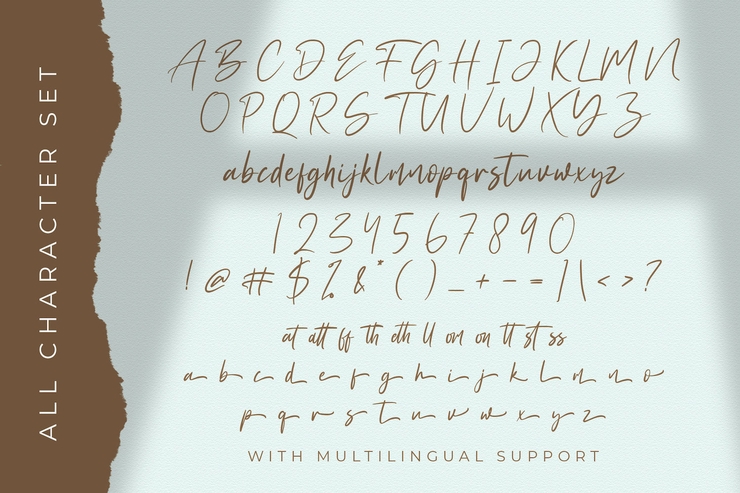 ALL CHARACTER SET
A B C D E F G H I J K L M N
O P Q R S T U V W X Y Z
abcdefghijklmnopqrstuvwxyz
1 2 3 4 5 6 7 8 9 0
! @ # $ % & * ( ) _ + - = ] \ < > ?
at att ff th dth ll om on tt st ss
a b c d e f g h i j k l m n o
p q r s t u v w x y z
WITH MULTILINGUAL SUPPORT